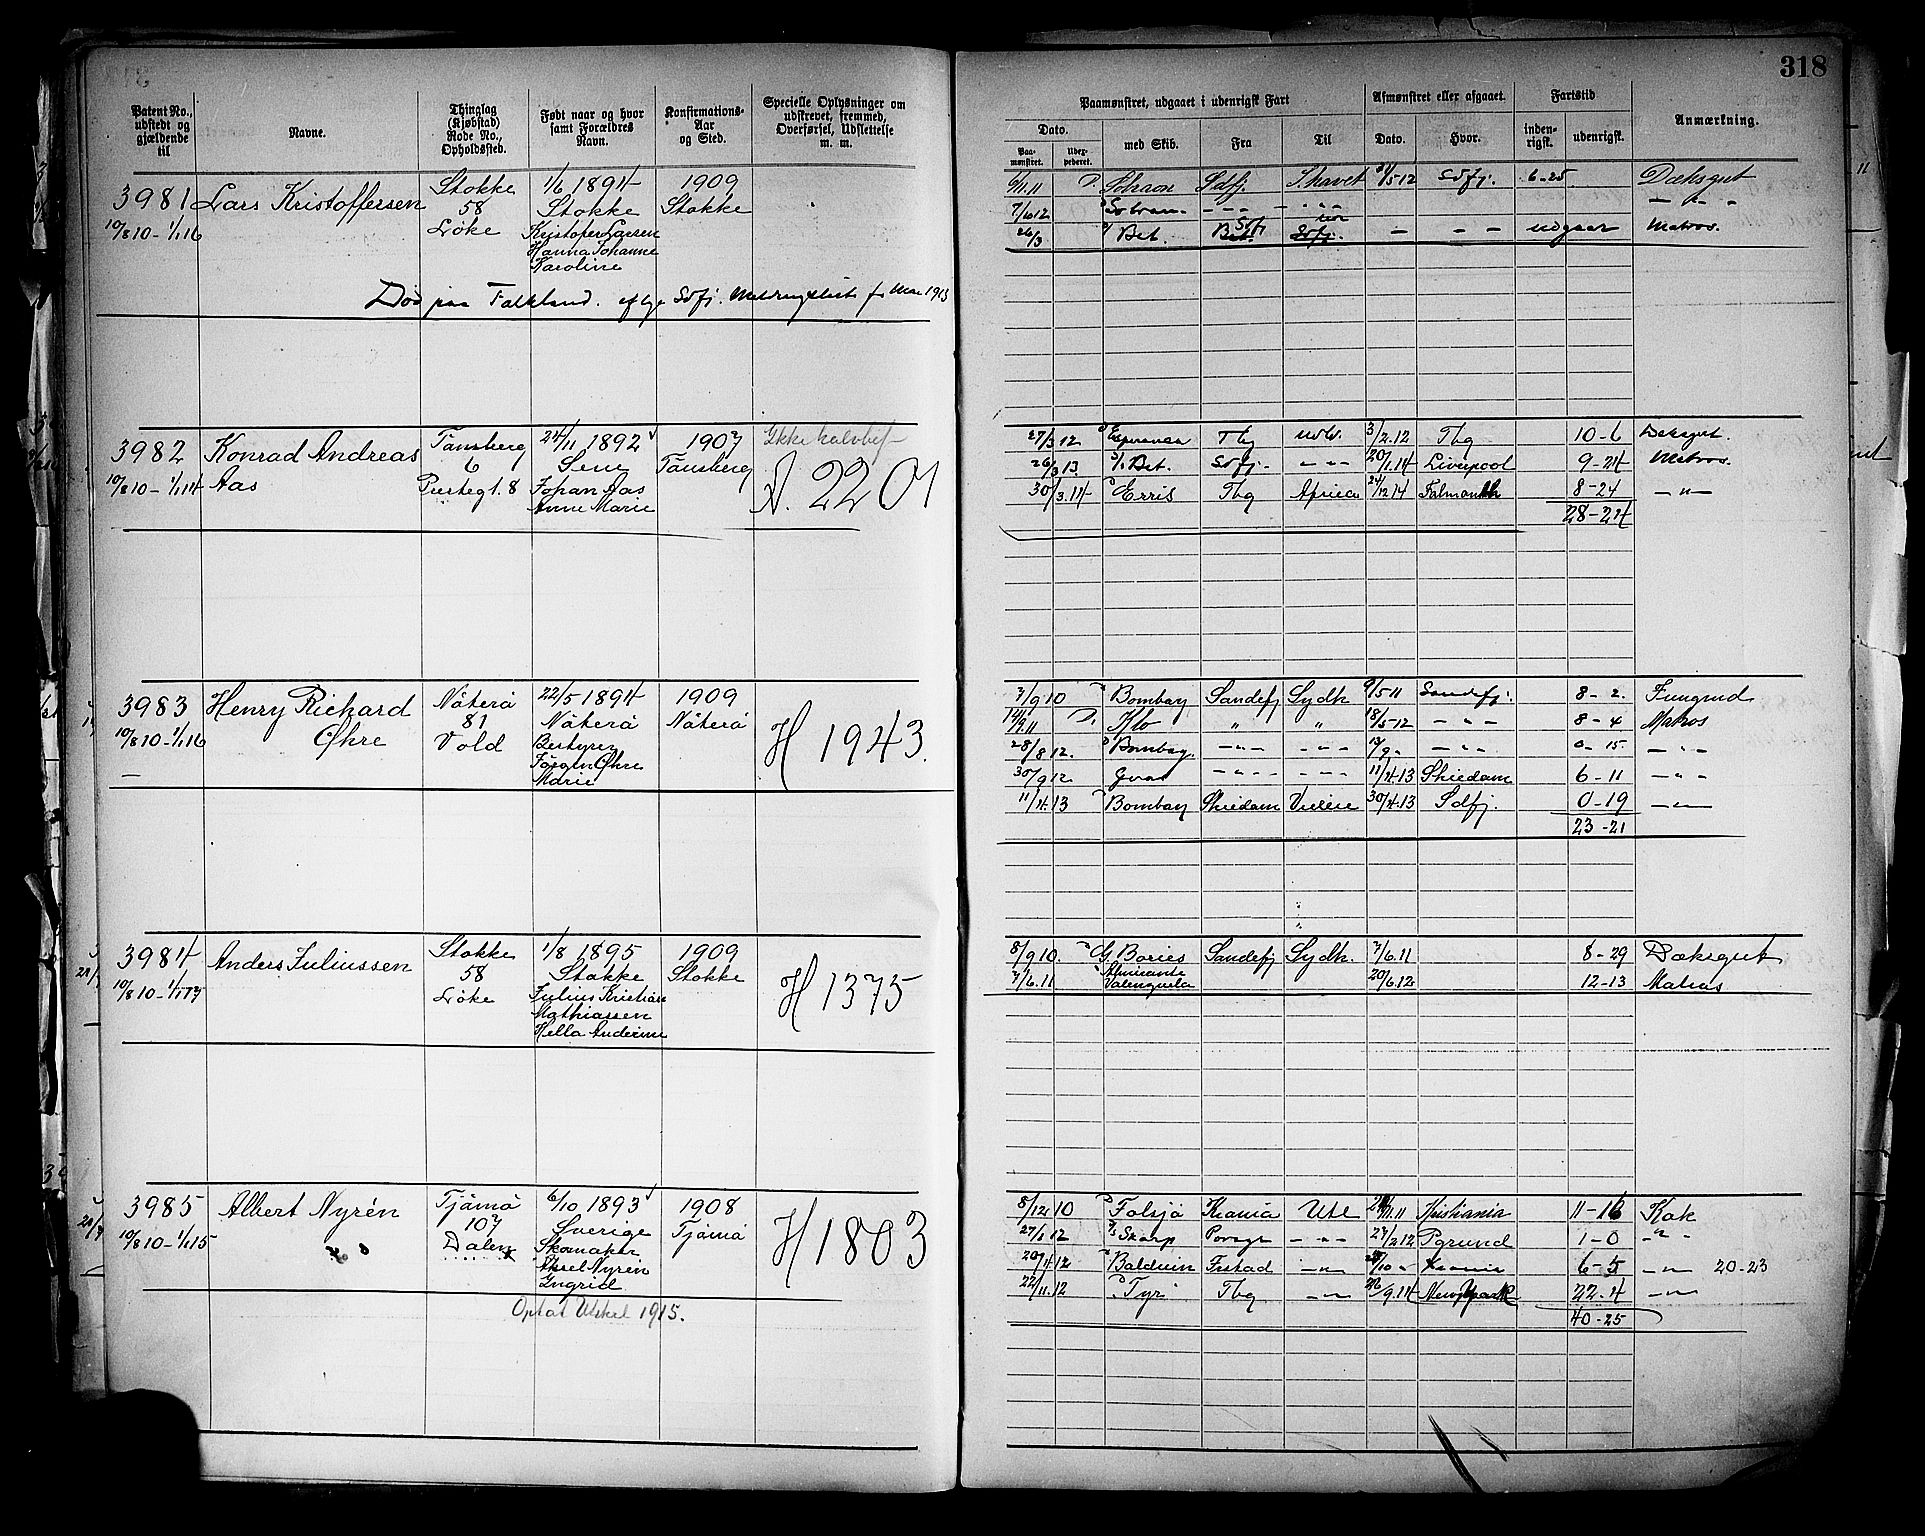 318
Patent No., udstedt og gjældende til
Navne.
Thinglag (Kjøbstad) Rode No., Opholdssted.
Født naar og hvor samt Forældres Navn.
Konfirmations-Aar og Sted.
Specielle Oplysninger om udskrevet, fremmed, Overførsel, Udslettelse m. m.
Paamønstret, udgaaet i udenrigsk Fart
Afmønstret eller afgaaet.
Fartstid
Anmærkning.
Dato.
Paa-mønstret.
Udex-pederet.
med Skib.
Fra
Til
Dato.
Hvor.
inden-rigsk.
udenrigsk.
3981 Lars Kristoffersen Stokke 1/6 1894 1909
58 Stokke Stokke
10/8 10 - 1/1 16 Løke Kristofer Larsen
Hanna Johanne
Karoline
Død paa Falkland. Sdfj. Meldingslist 1913
6/11.11 Sdfj. S. havet 31/5 12 Sdfj. 6-25 Dæksgut
7/6 12
26/3 Bet. Sdfj. udgaar Matros.
3982 Konrad Andreas Tønsberg 24/11 1892 1907 Ikke
Aas 6 Sem Tønsberg A. 2201
10/8 10 - 1/1 14 Prestegt. 8 Johan Aas
Anne Marie
27/3 12 Tbg udl. 3/2.12 Tbg 10-6 Deksgut.
26/3 13 Bet. Sdfj. - " - 20/1.14 Liverpool 9-24 Matros.
30/3.14 Erris Tbg Africa 24/12 14 Falmouth 8-24 - " -
28-24
3983 Henry Richard Nøterø 22/5 1894 1909
Øhre 81 Nøterø Nøterø H 1943.
10/8 10 - 1/1 16 Vold Bestyrer
Jørgen Øhre
Marie
7/9 10 Bombay Sandefj Sydh. 9/5 11 Sandefj. 8-2 Jungmd
14/9 11 Klo " " 18/5-12 - " - 8-4 Matros
28/8 12. Bombay - " - - " - 13/9 - - " - 0-15 - " -
30/9 12 - " - - " - 11/4.13 Skiedam 6-11 - " -
11/4.13 Bombay Skiedam 30/4.13 Sdfj. 0-19 - " -
23-21
3984 Anders Juliussen Stokke 1/8 1895 1909
58 Stokke Stokke H 1375
10/8 10 - 1/1 17 Løke Julius Kristian
Mathiassen
Hella Anderine
8/9 10. G. Bories Sandefj Sydh. 7/6.11 8-29 Dæksgut
7/6.11 Almirante
Valenzuela 20/6.12 12-13 Matros
3985 Albert Nyrén Tjømø 6/10 1893 1908
107 Sverige Tjømø H 1803
10/8 10 - 1/1 15 Dalen Skomaker
Aksel Nyrén
Ingrid
1915.
8/12 10 Falsjø Krania Ude 11.11 Kristiania 11-16 Kok
27/1 12 Skarp Porsgr - " - 27/2 12 Pgrund 1-0 - " -
20/4 12 Balduin Frstad - " - 10 - Krania 6-5 - " - 20-23
22/11.12 Tyr Tbg - " - 26/9.14 New York 22-4 - " -
40-25